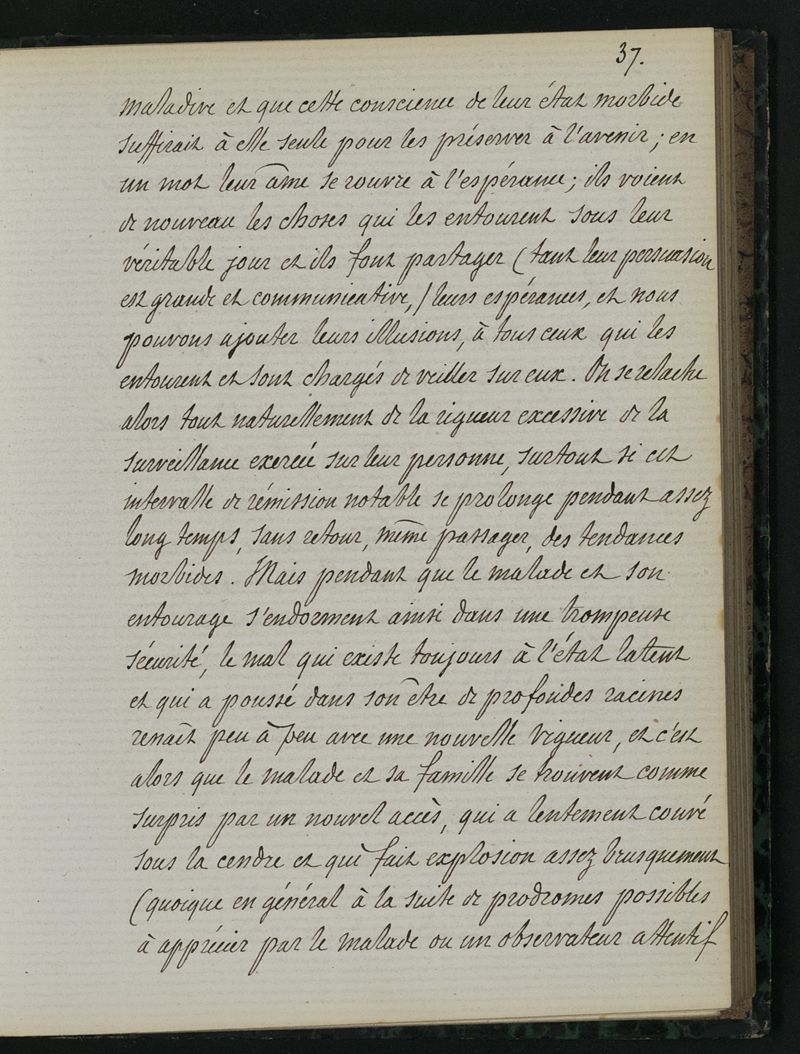 37.
maladive et que cette conscience de leur état morbide
suffirait à elle seule pour les préserver à l'avenir ; en
un mot leur âme se rouvre à l'espérance ; ils voient
de nouveau les choses qui les entourent sous leur
véritable jour et ils font partager (tant leur persuasion
est grande et communicative,) leurs espérances, et nous
pouvons ajouter leurs illusions, à tous ceux qui les
entourent et sont chargés de veiller sur eux. On se relache
alors tout naturellement de la rigueur excessive de la
surveillance exercée sur leur personne, surtout si cet
intervalle de rémission notable se prolonge pendant assez
long temps, sans retour, même passager, des tendances
morbides. Mais pendant que le malade et son
entourage s'endorment ainsi dans une trompeuse
sécurité, le mal qui existe toujours à l'état latent
et qui a poussé dans son être de profondes racines
renaît peu à peu avec une nouvelle vigueur, et c'est
alors que le malade et sa famille se trouvent comme
surpris par un nouvel accès, qui a lentement couvé
sous la cendre et qui fait explosion assez brusquement
(quoique en général à la suite de prodromes possibles
à apprécier par le malade ou un observateur attentif